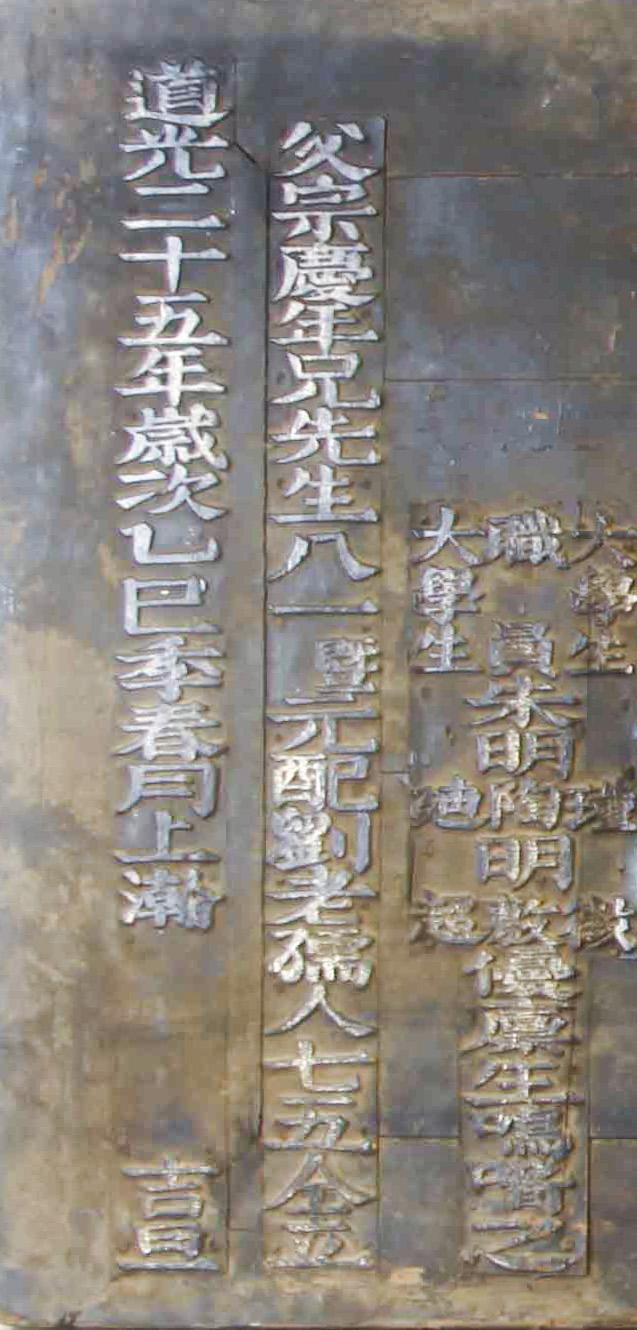 大學生
職員朱明陶明優廩生鳴喈之
大學生
父宗慶年兄先生八一暨元配劉老孺人七五仝立
道光二十五年歲次乙巳季春月上澣 吉旦